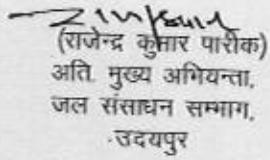 (राजेन्द्र कुमार पारीक)
अति. मुख्य अभियन्ता,
जल संसाधन सम्भाग,
उदयपुर